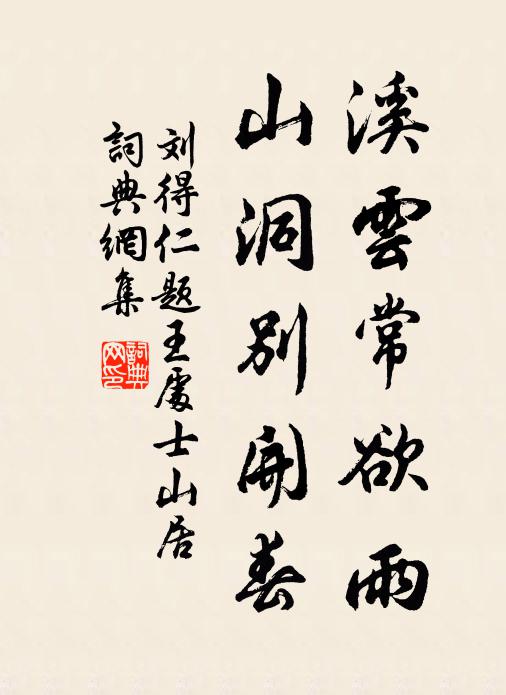 溪雲常欲雨
山洞別開春
刘得仁题王處士山居
詞典網集
詞典网印